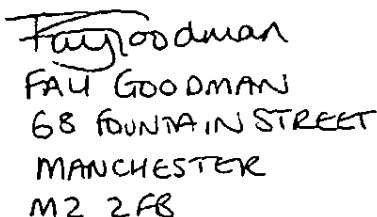 Fay Goodman
FAY GOODMAN
68 FOUNTAIN STREET
MANCHESTER
M2 2FB